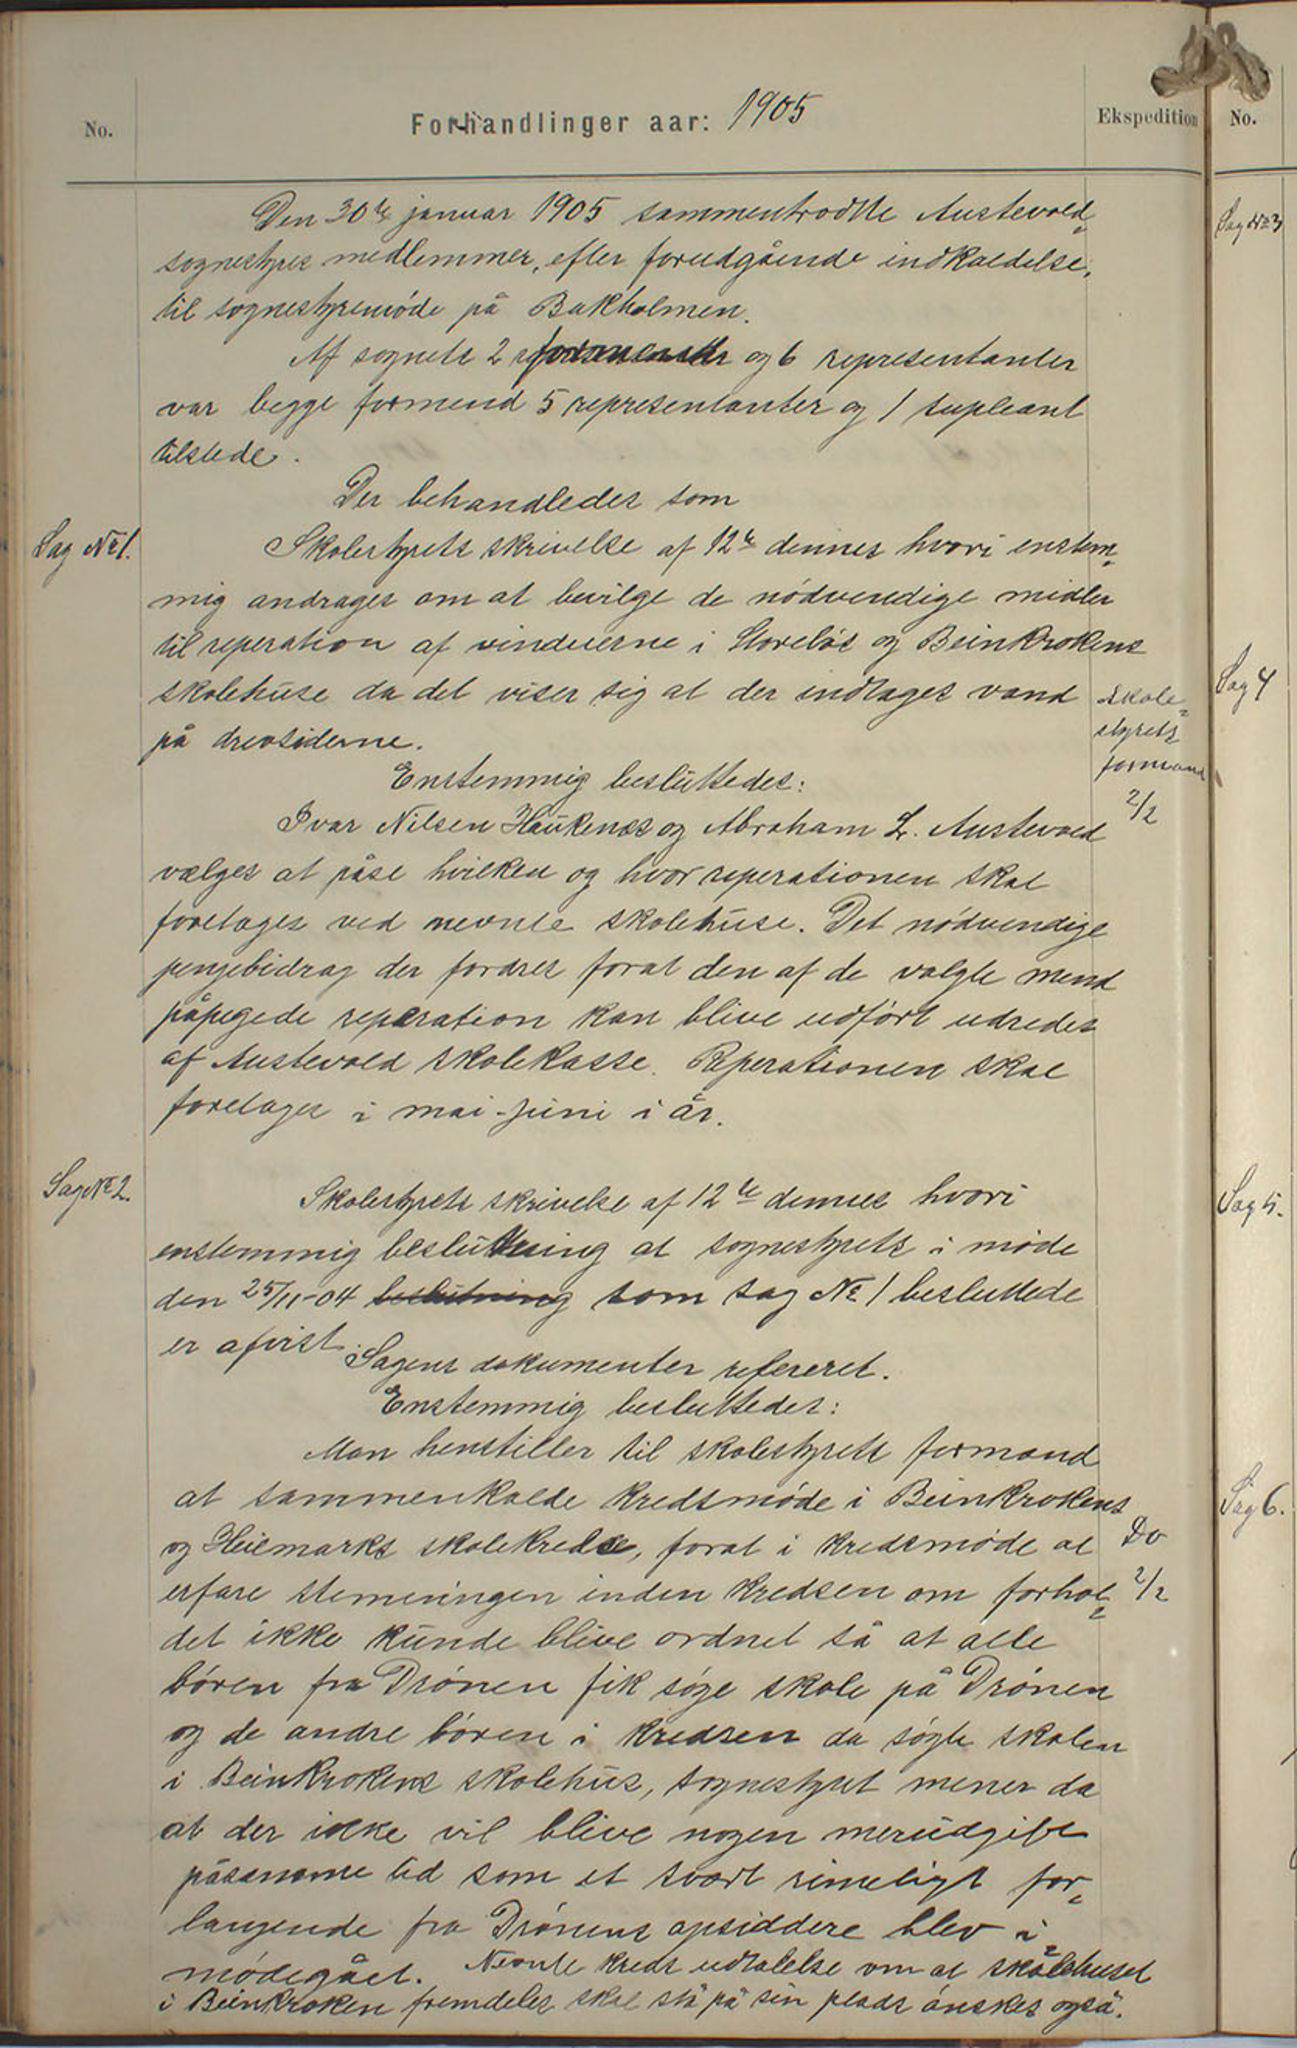 No.
Forhandlinger aar: 1905
Ekspedition
No.
Den 30te januar 1905 sammentrådte Austevold=
sognestyres medlemmer, efter forudgående indkaldelse,
til sognestyremöde på Bakholmen.
Af sognets 2 formend og 6 representanter
var begge formend 5 representanter og 1 supleant
tilstede.
Der behandledes som
Sag № 1.
Skolestyrets skrivelse af 12te dennes hvori enstem=
mig andrages om at bevilge de nödvendige midler
til reperation af vinduerne i Storebös og Beinkrokens
skolehuse da det viser sig at der indtages vand
på drevsiderne.
Skole=
styrets
formand
2/2
Enstemmig besluttedes:
Ivar Nilsen Haukenæs og Abraham L. Austevold
vælges at påse hvilken og hvor reperationen skal
foretages ved nevnte skolehuse. Det nödvendige
pengebidrag der fordres forat den af de valgte mend
påpegede reperation kan blive udfört udredes
af Austevold skolekasse. Reperationen skal
foretages i mai-juni i år.
Sag № 2.
Skolestyrets skrivelse af 12te dennes hvori
enstemmig beslutning at sognestyrets i möde
den 25/11-04 beslutning som sag № 1 besluttede
er afvist.
Sagens dokumenter refereret.
Enstemmig besluttedes:
Man henstiller til skolestyrets formand
at sammenkalde kredsmöde i Beinkrokens
og Heimarks skolekredse, forat i kredsmöde at
erfare stemningen inden kredsen om forhol=
det ikke kunde blive ordnet så at alle
bören fra Drönen fik söge skole på Drönen
og de andre bören i kredsen da sögte skolen
i Beinkrokens skolehus, sognestyret mener da
at der ikke vil blive nogen merudgift
påsamme tid som et svært rimeligt for=
langende fra Drönens opsiddere blev i=
mödegået. Nevnte kreds udtalelse om at skolehuset
i Beinkroken fremdeles skal stå på sin plads önskes også.
Do
2/2
Sag № 3
Sag 4
Sag 5.
Sag 6.